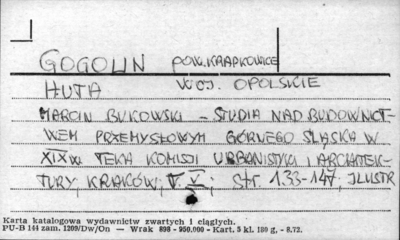 GOGOLIN POW. KRAPKOWICE
HUTA WOJ. OPOLSKIE
MARCIN BUKOWSKI - STUDIA NAD BUDOWNICT-
WEM PRZEMYSŁOWYM GÓRNEGO ŚLĄSKA W
XIX W. TEKA KOMISJI URBANISTYKI I ARCHITEK-
TURY, KRAKÓW, T. V, STR. 133-147, ILUSTR
Karta katalogowa wydawnictw zwartych i ciągłych.
PU-B 144 zam. 1209/Dw/On — Wrak 898 - 950.000 - Kart. 5 kl. 180 g, - 8.72.